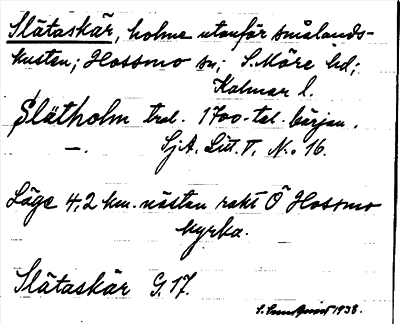 Slätaskär, holme utanför smålands-
kusten; Hossmo sn; S. Möre hd;
Kalmar l.
Slätholm trol. 1700-tal. början.
—. Sj.A. Litt. T. No 16.
Läge 4,2 km. nästan rakt Ö Hossmo
kyrka.
Slätaskär G. 17.
1938.